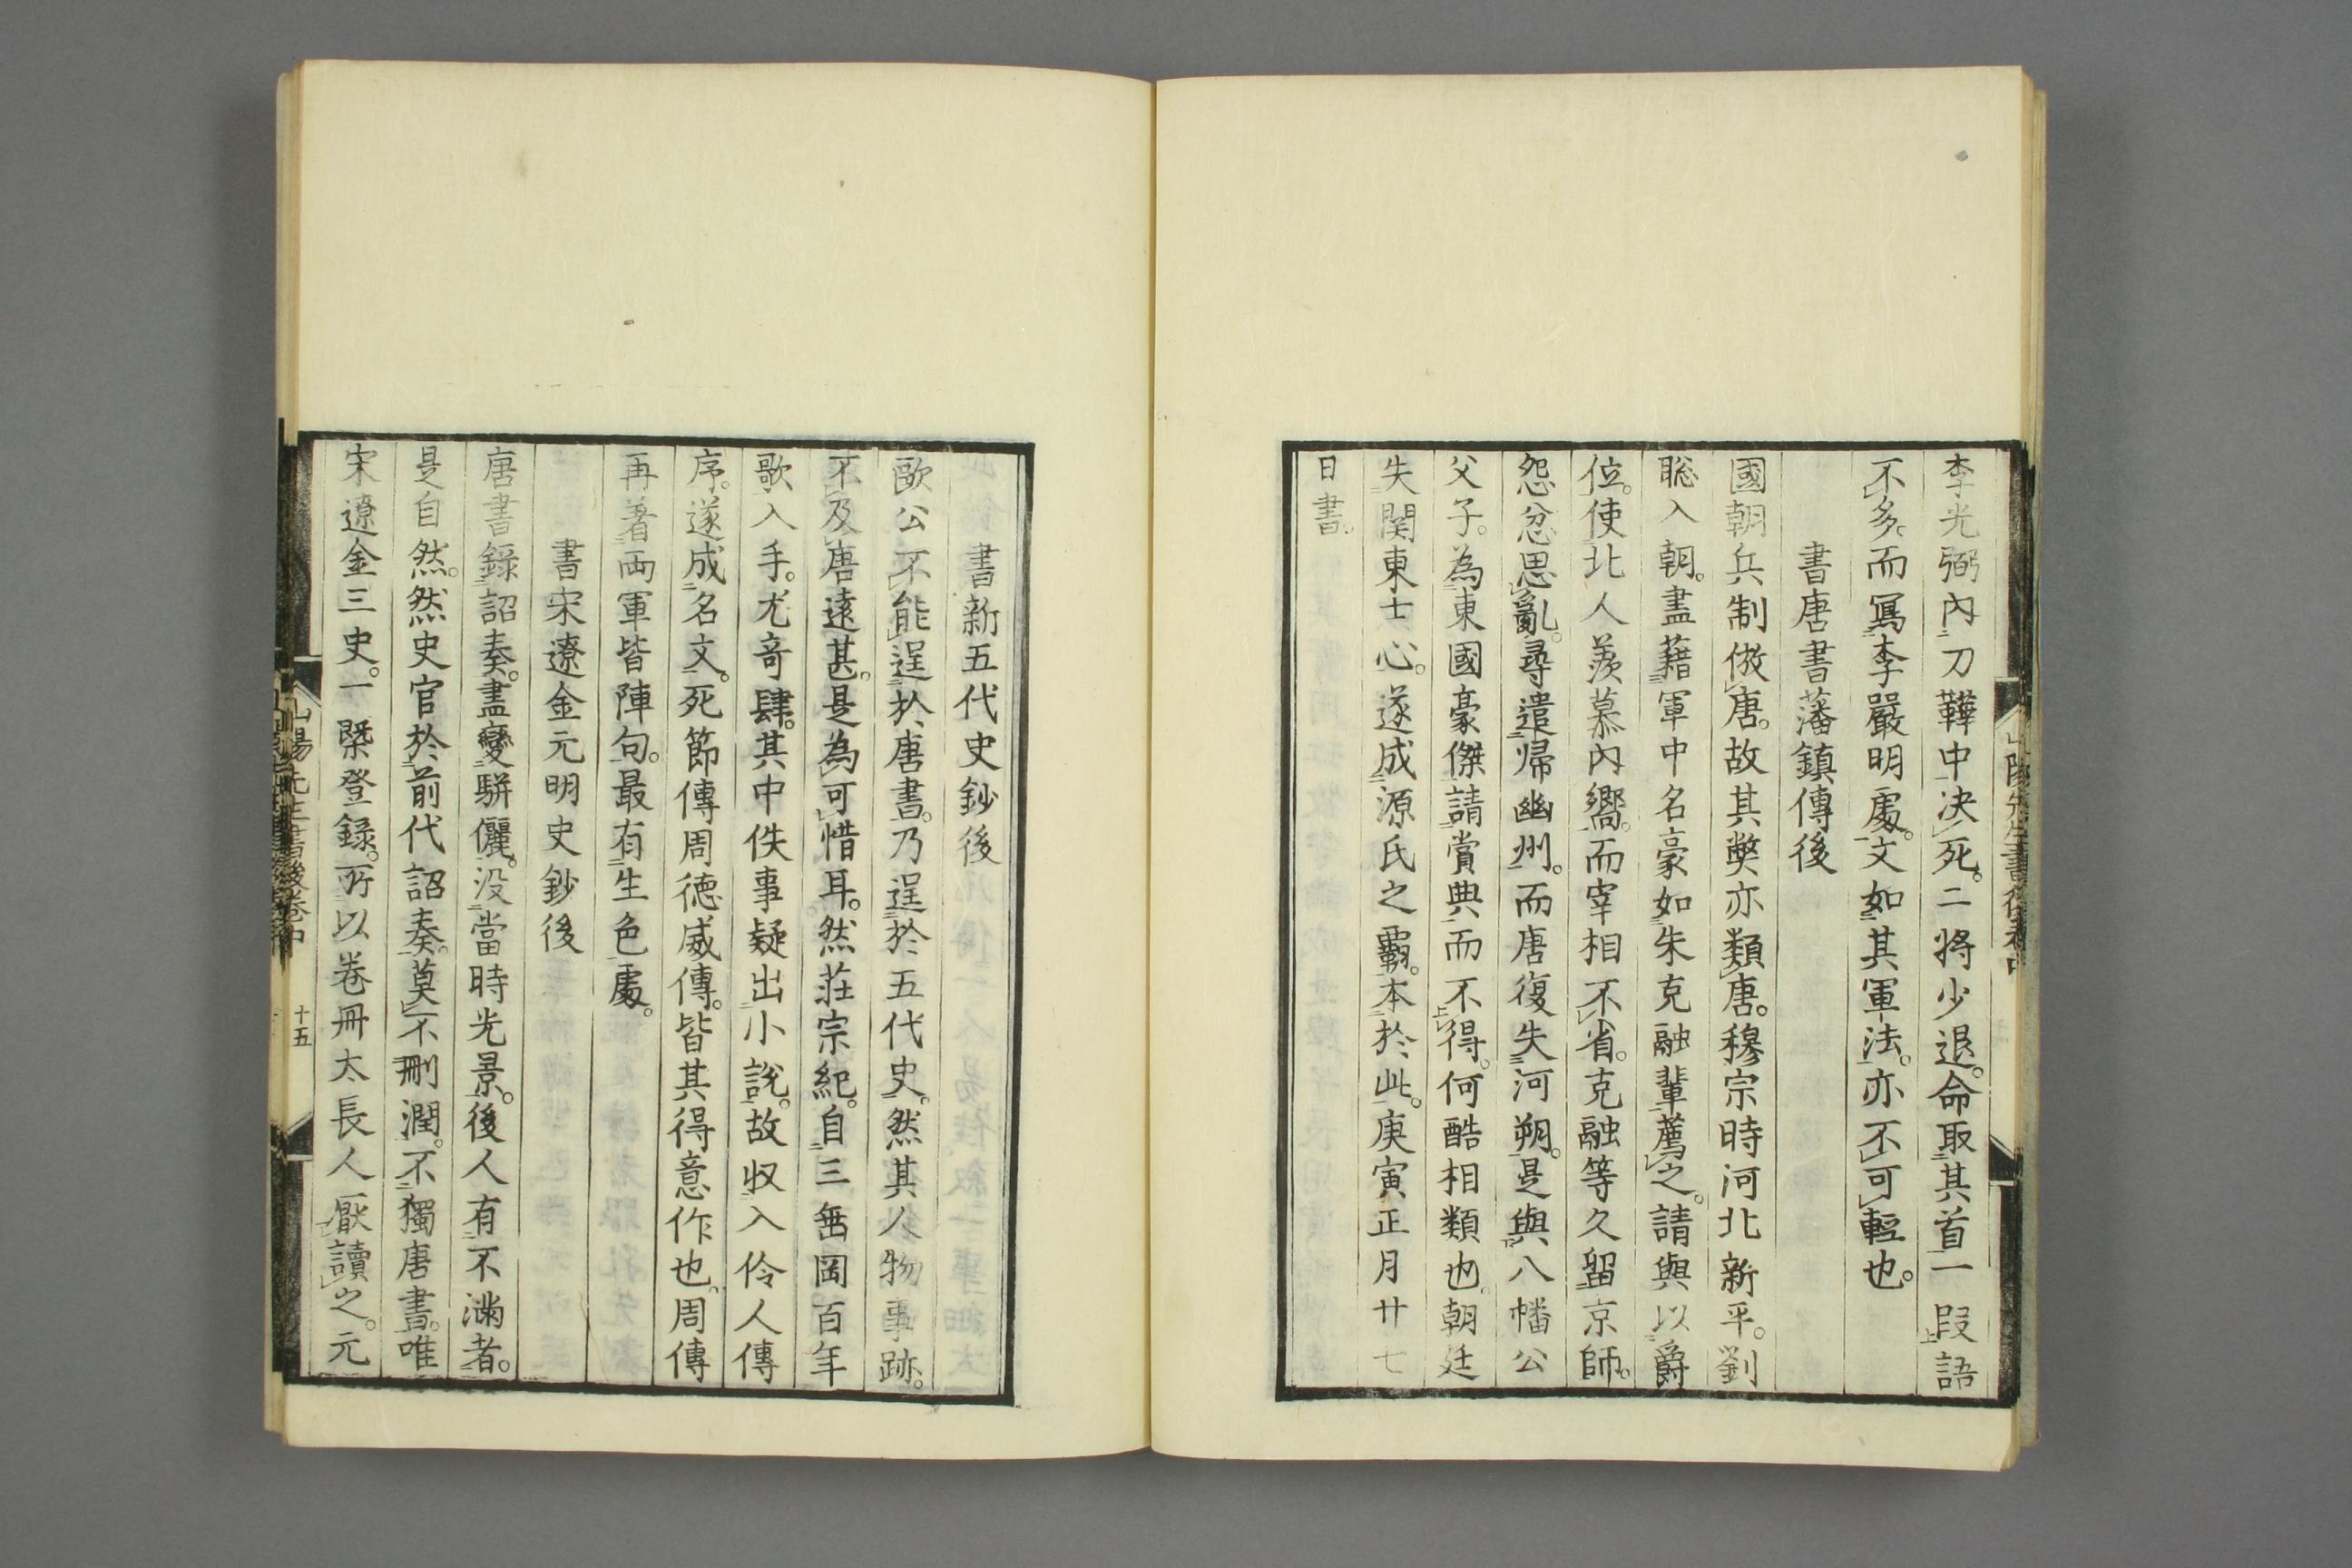 李光弼內刀鞾中决死。二將少退。命取其首一段語
不多。而寫李嚴明處。文如其軍法。亦不可輕也。
書唐書藩鎮傳後
國朝兵制倣唐。故其弊亦類唐。穆宗時河北新平。劉
聡入朝。盡藉軍中名豪如朱克融輩薦之。請與以爵
位。使北人羨慕內嚮。而宰相不省。克融等久留京師。
怨忿思亂。尋遣歸幽州。而唐復失河朔。是與八幡公
父子。為東國豪傑請賞典而不得。何酷相類也。朝廷
失関東士心。遂成源氏之覇。本於此。庚寅正月廿七
日書。
山陽先生書後卷中
書新五代史鈔後
歐公不能逞於唐書。乃逞於五代史。然其人物事跡。
不及唐遠甚。是為可惜耳。然莊宗紀。自三垂岡百年
歌入手。尤奇肆。其中佚事疑出小說。故収入伶人傳
序。遂成名文。死節傳周徳威傳。皆其得意作也。周傳
再著両軍皆陣句。最有生色處。
書宋遼金元明史鈔後
唐書錄詔奏。盡變駢儷。没當時光景。後人有不滿者。
是自然。然史官於前代詔奏。莫不刪潤。不獨唐書。唯
宋遼金三史。一槩登録。所以卷冊太長人厭讀之。元
山陽先生書後卷中
十五